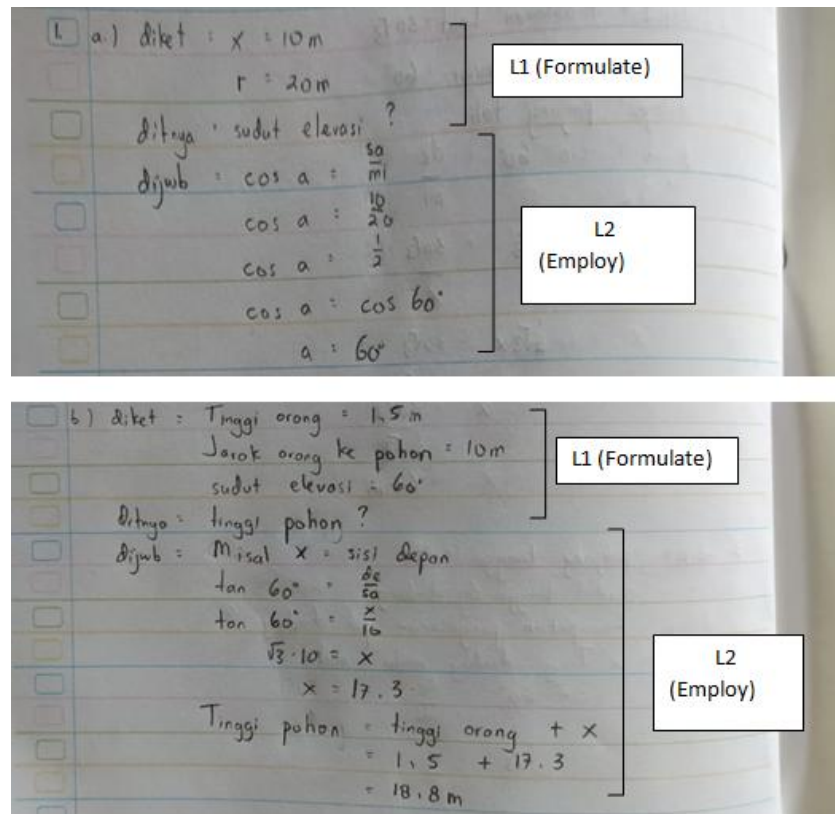 1. a.) diket : x : 10 m
r : 20 m
L1 (Formulate)
ditnya : sudut elevasi ?
dijwb : cos a : sa/mi
cos a : 10/20
cos a : 1/2
cos a : cos 60°
a : 60°
L2
(Employ)
b) diket : Tinggi orang = 1,5 m
Jarak orang ke pohon = 10 m
sudut elevasi = 60°
L1 (Formulate)
Ditnya : tinggi pohon ?
dijwb : Misal x = sisi depan
tan 60° = de/sa
tan 60° = x/10
√3 · 10 = x
x = 17.3
Tinggi pohon = tinggi orang + x
= 1,5 + 17.3
= 18.8 m
L2
(Employ)